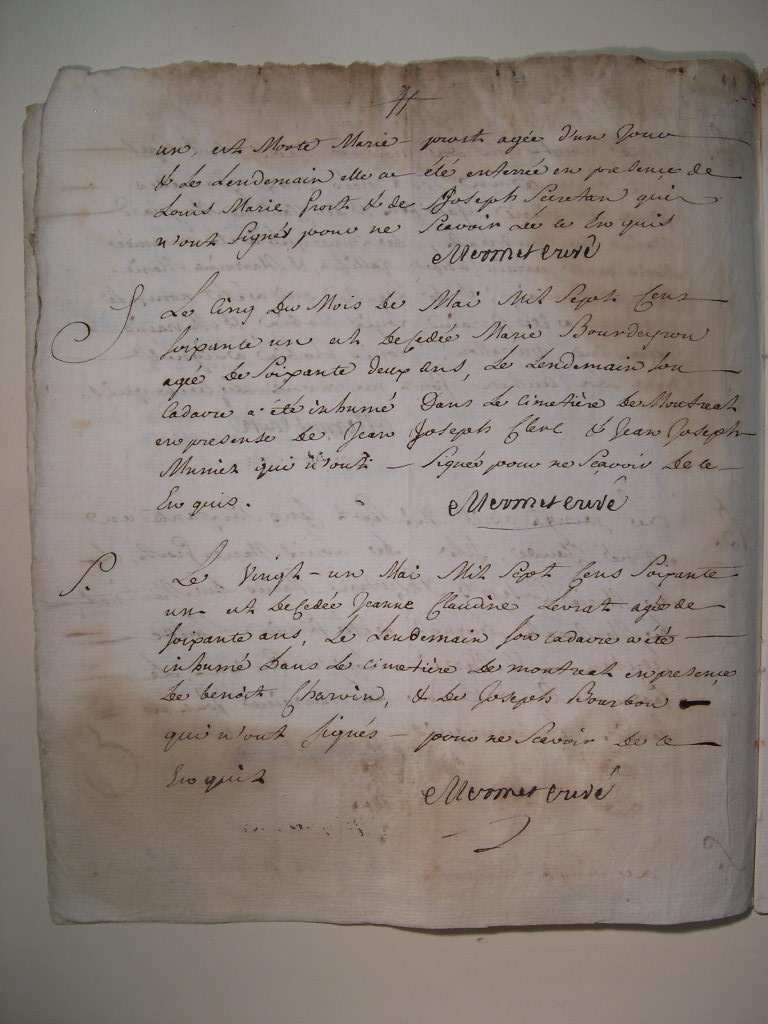 un, est Morte Marie prost agée d'un Jour
& Le Lendemain elle a été enterrée en presence de
Louis Marie Prost & de Joseph Secretan qui
n'ont Signés pour ne Scavoir de ce Enquis
Mermet curé
S. Le Cinq Du Mois de Mai Mil Sept Cens
soixante un est Decedée Marie Bourdeyron
agée de Soixante deux ans, Le Lendemain son
Cadavre a été inhumé Dans Le cimetière de Montreal
en presense de Jean Joseph Clerc & Jean Joseph
Muniez qui n'ont Signés pour ne Sçavoir de ce
Enquis. Mermet curé
S. Le Vingt-un Mai Mil Sept Cens Soixante
un est Decedée Jeanne Claudine Levrat agée de
soixante ans, Le Lendemain son cadavre a été
inhumé Dans Le cimetière de montreal en presence
De benoit Charvin, & de Joseph Bourbon
qui n'ont signés pour ne Scavoir de ce
Enquis
Mermet curé